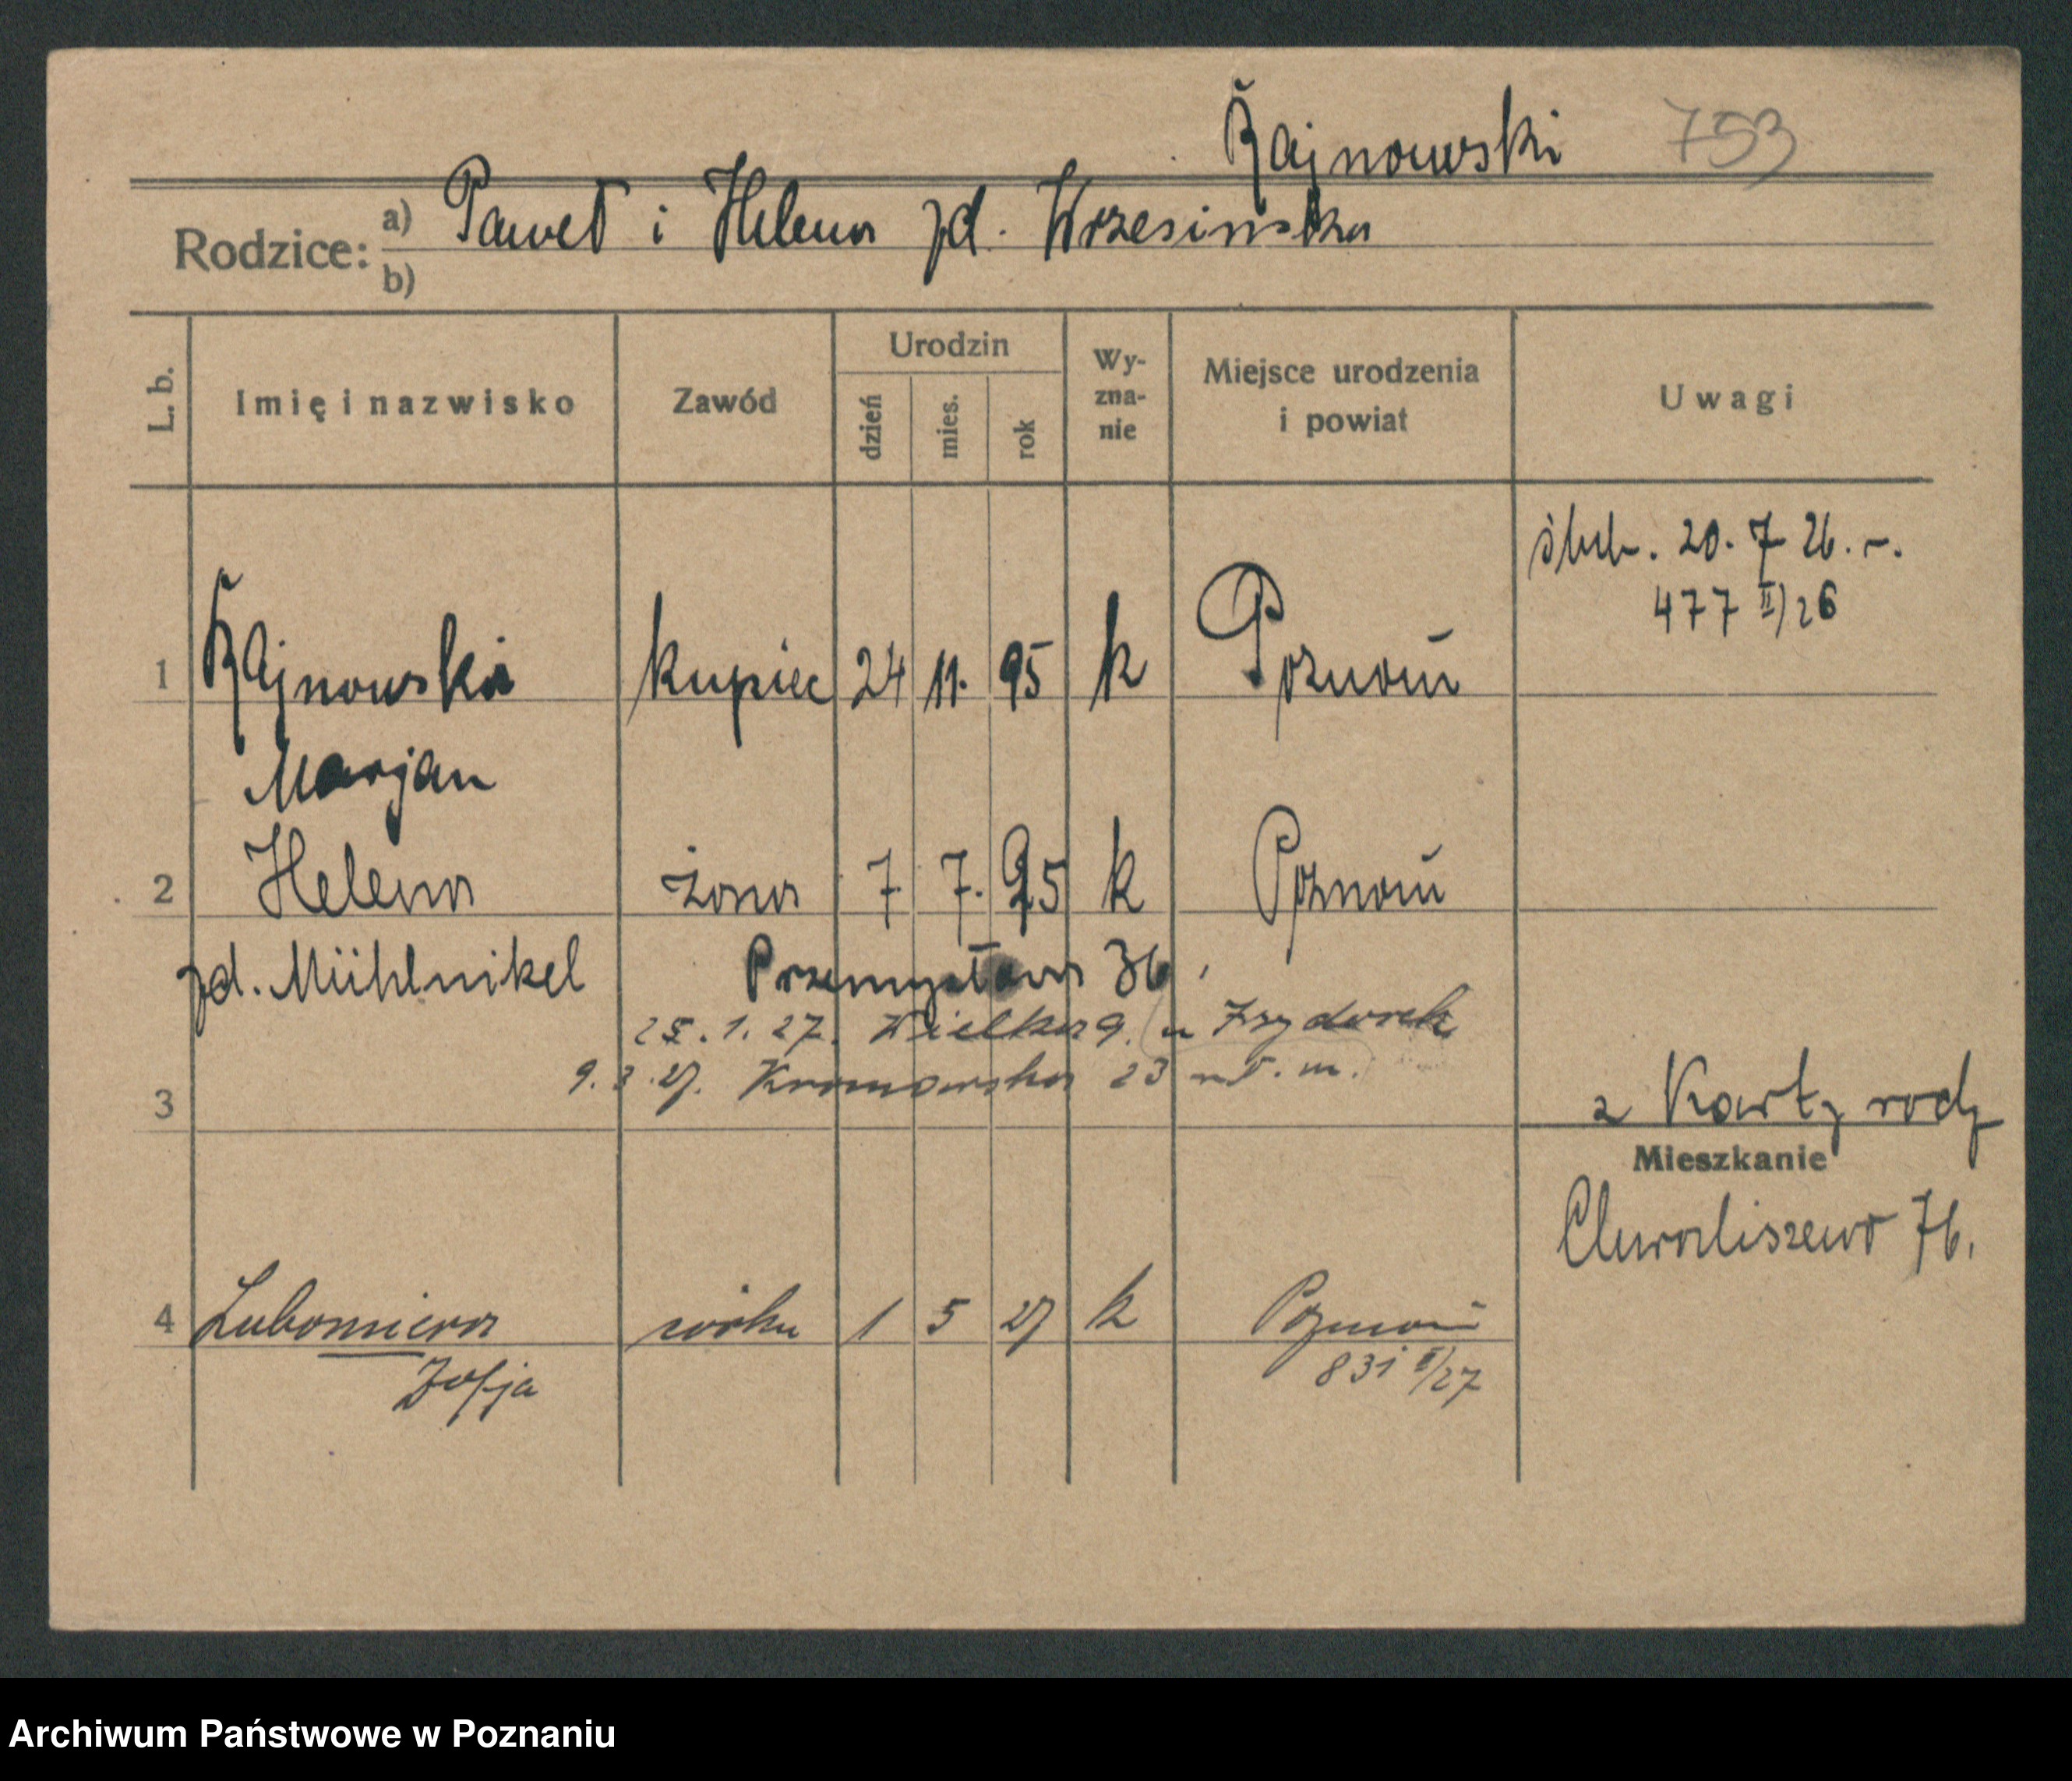 Rajnowski 753
Rodzice: a) Paweł i Helena zd. Wrzesińska
b)
L. b. Imię i nazwisko Zawód Urodzin dzień mies. rok Wy-zna-nie Miejsce urodzenia i powiat Uwagi
ślub. 20. 7 26. r.
477 II/26
1 Rajnowski kupiec 24 11. 95 k Poznań
Marjan
2 Helena żona 7 7. 95 k Poznań
zd. Mühlnikel Przemysłowa 36
25. 1. 27. Wielka 9. u
9. 3. 27. 23
3 z Karty rodz
Mieszkanie
Chwaliszewo 76.
4 Lubomiera córka 1 5 27 k Poznań
Zofja 831 II/27
Archiwum Państwowe w Poznaniu